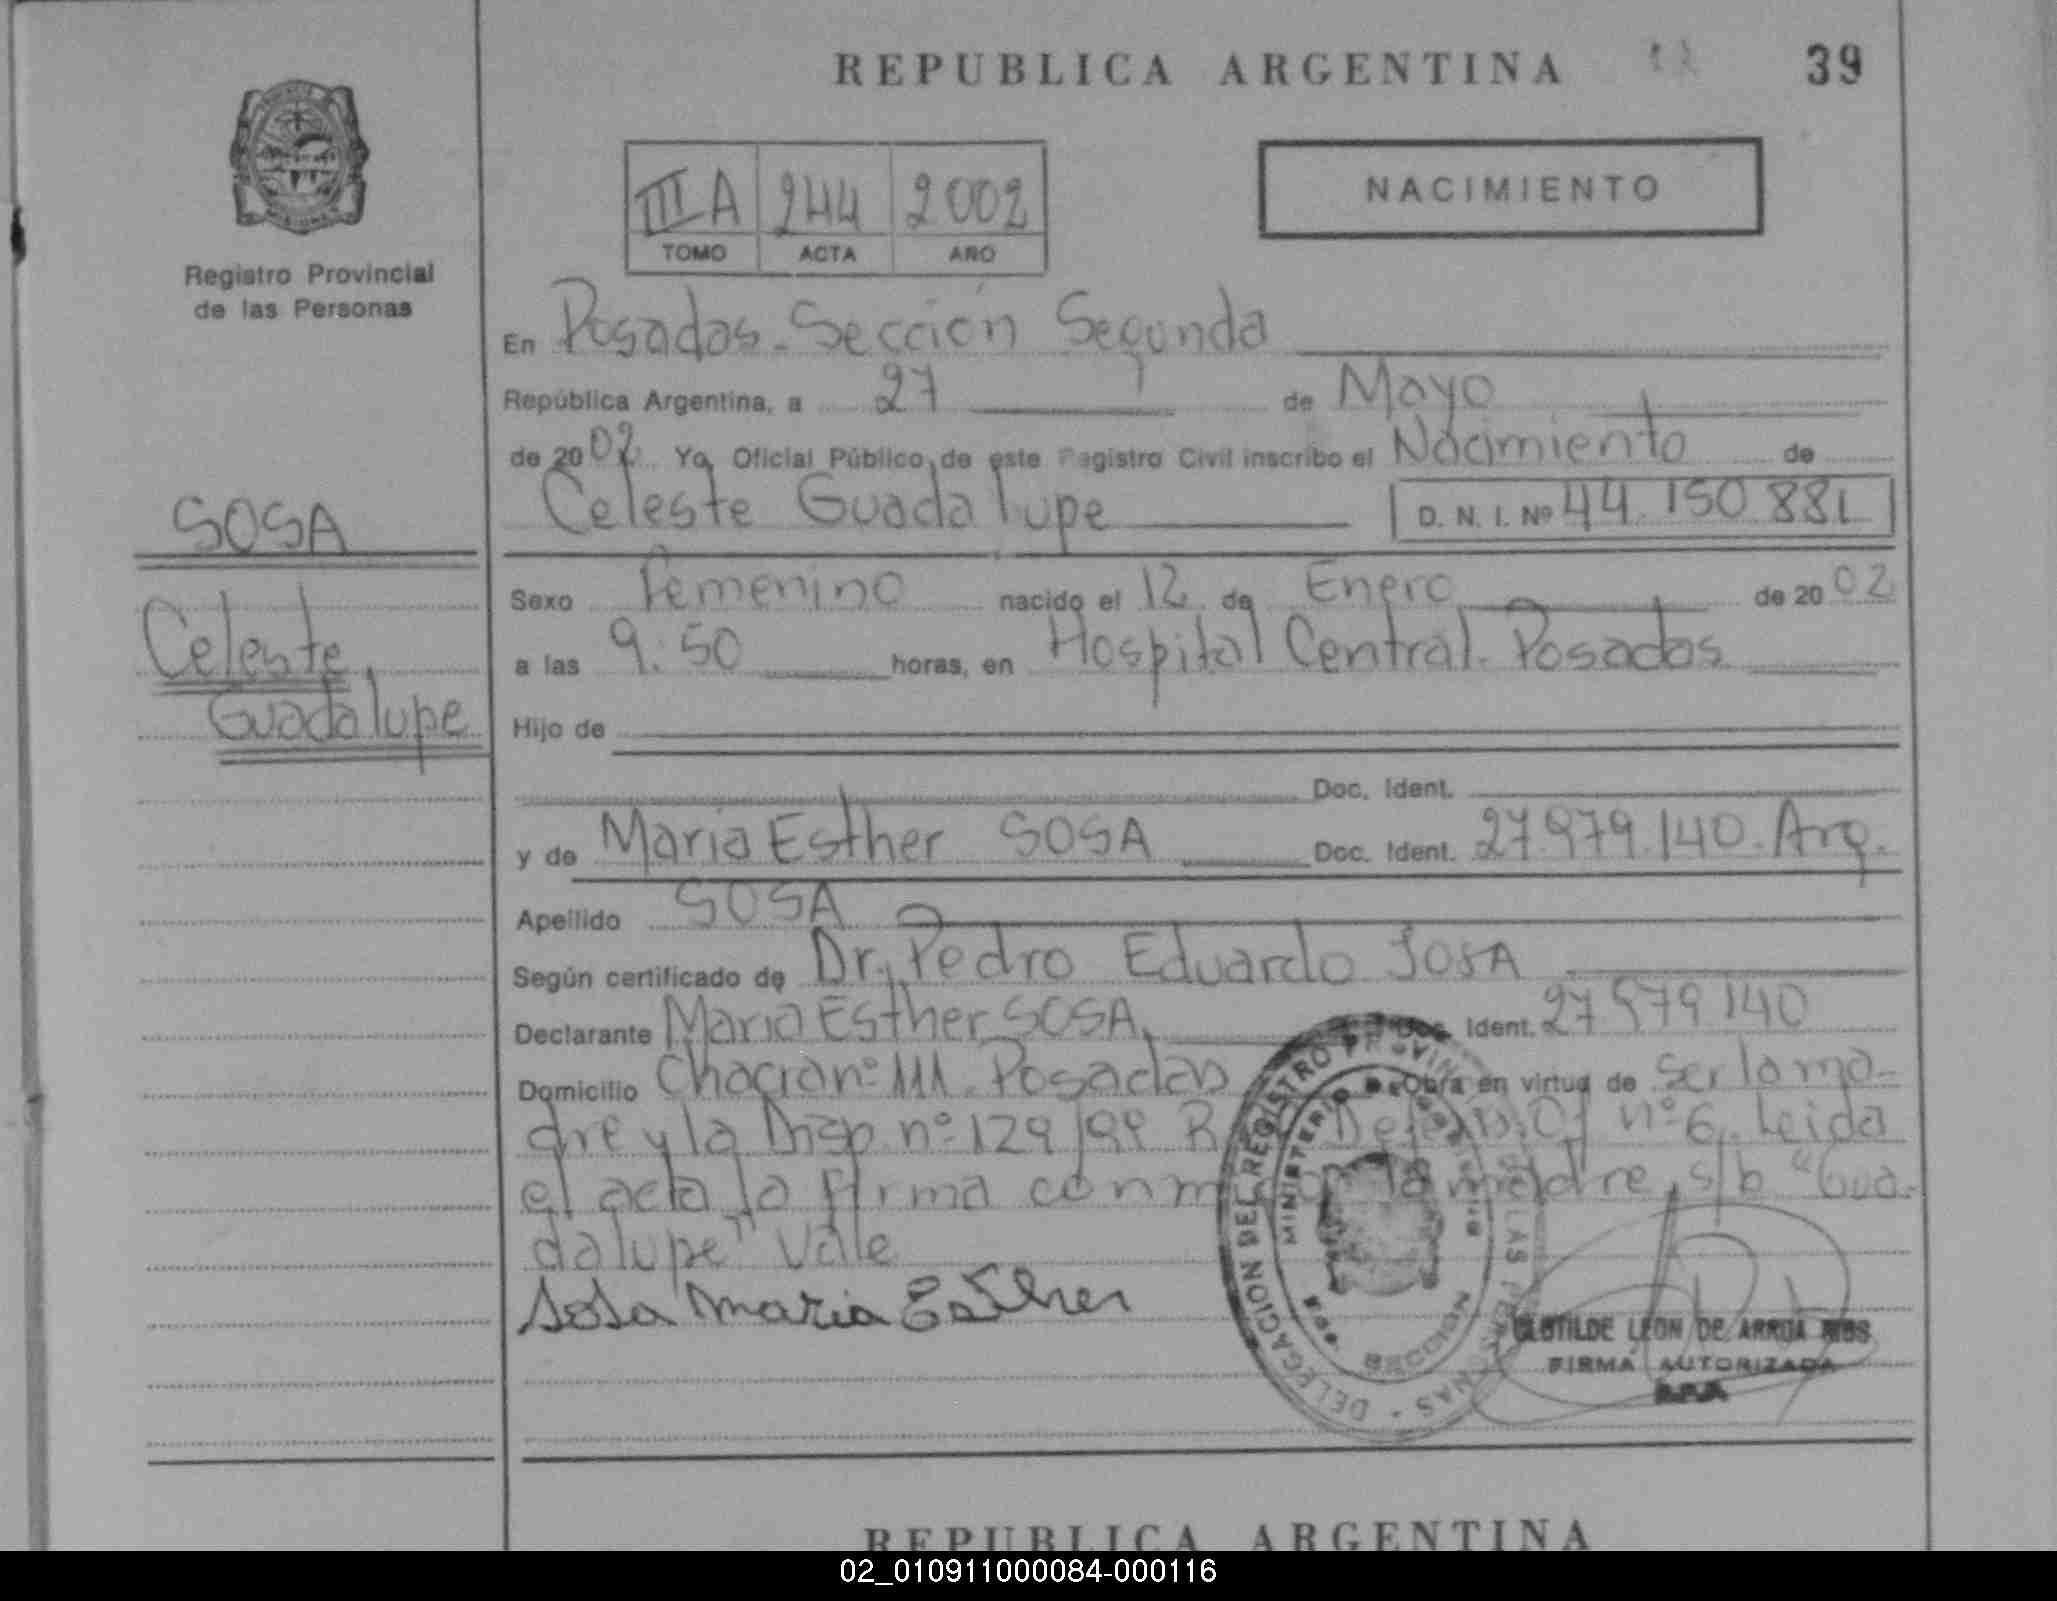 REPUBLICA ARGENTINA
39
III A 244 2002
TOMO ACTA AÑO
NACIMIENTO
Registro Provincial
de las Personas
En Posadas - Sección Segunda
República Argentina, a 27 de Mayo
de 2002 Yo, Oficial Público, de este Registro Civil inscribo el Nacimiento de
Celeste Guadalupe D. N. I. Nº 44.150.881
SOSA
Celeste
Guadalupe
Sexo Femenino nacido el 12 de Enero de 2002
a las 9:50 horas, en Hospital Central. Posadas
Hijo de
Doc. Ident.
y de Maria Esther SOSA Doc. Ident. 27.979.140. Arg.
Apellido SOSA
Según certificado de Dr. Pedro Eduardo SOSA
Declarante Maria Esther SOSA, Doc. Ident. 27.979.140
Domicilio nº Posadas Obra en virtud de ser la ma-
dre y la Disp. nº 129/99 nº 6. Leida
el acta la firma la madre, s/b "Gua-
dalupe" Vale
Sosa Maria Esther
DELEGACION DEL REGISTRO PROVINCIAL DE LAS PERSONAS
MINISTERIO DE GOBIERNO
SECCION
CLOTILDE LEON DE ARRUA RIOS
FIRMA AUTORIZADA
REPUBLICA ARGENTINA
02_010911000084-000116